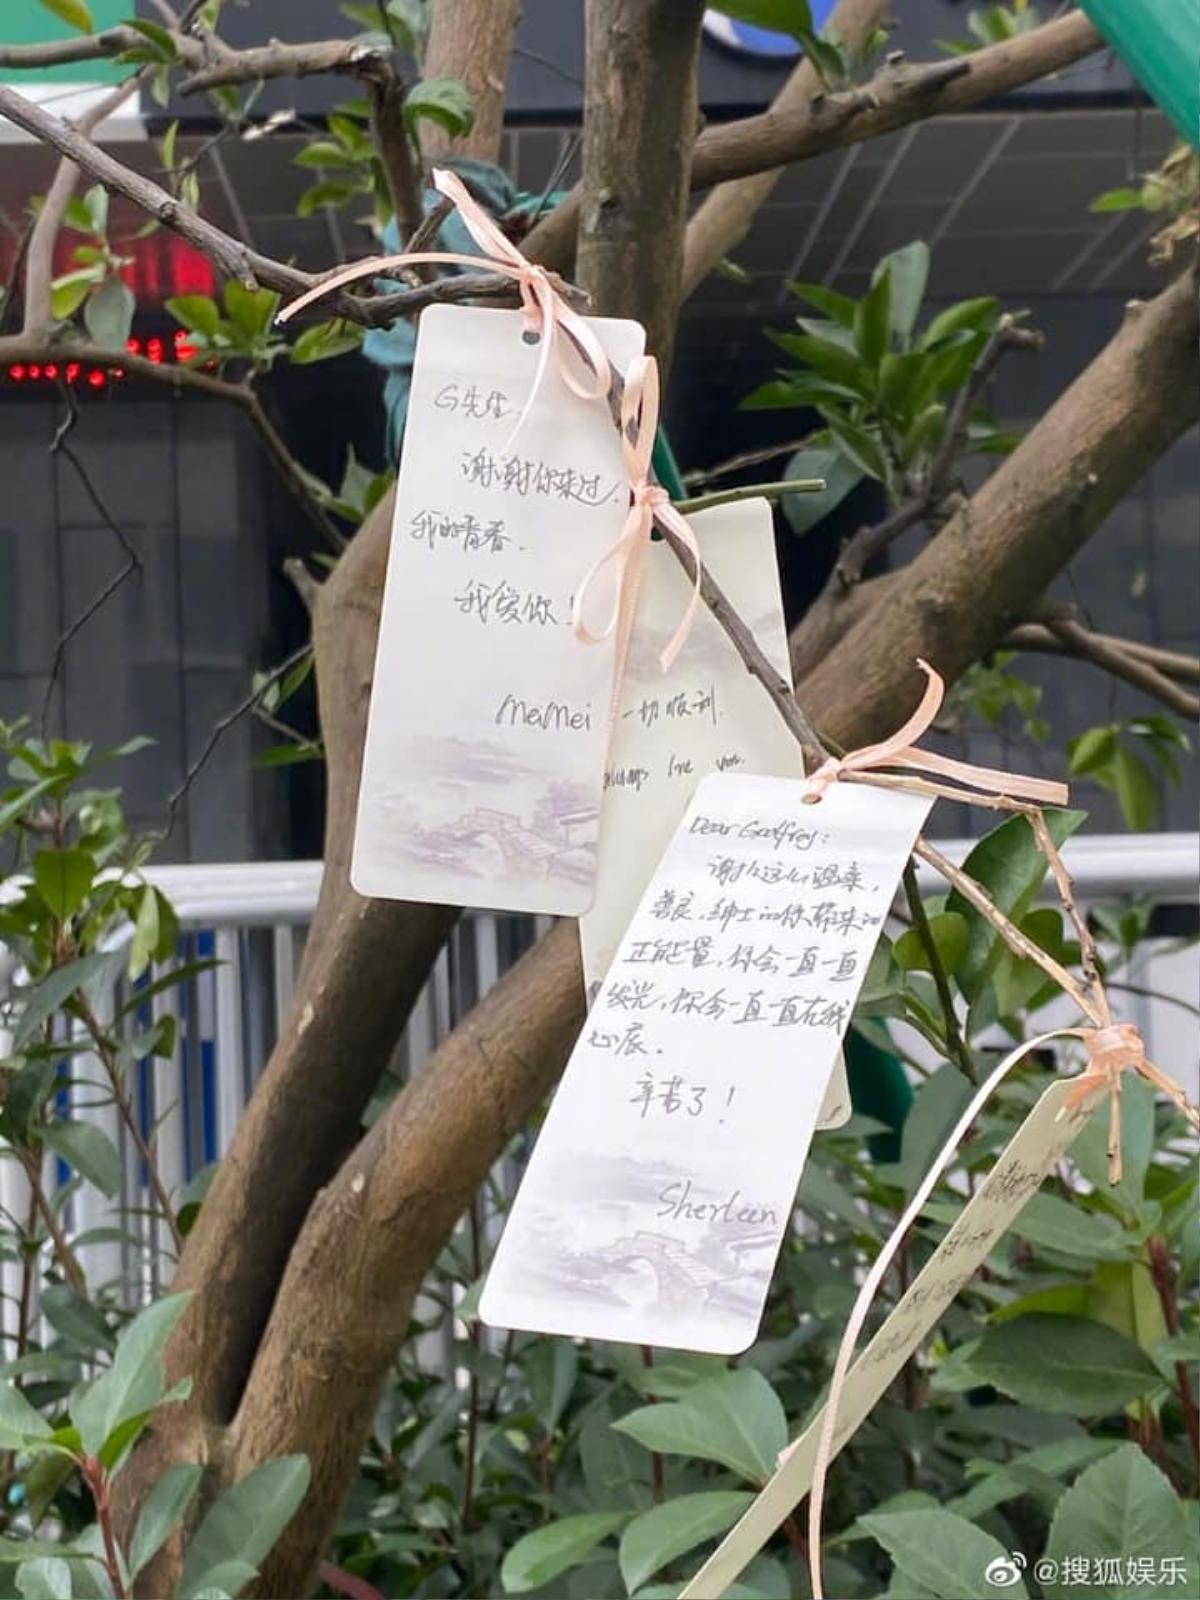 G先生,
谢谢你来过,
我的青春.
我爱你!
MeiMei
一切顺利.
always love you.
Dear Godfrey:
谢谢这么温柔,
善良,绅士的你带来的
正能量,你会一直一直
发光,你会一直一直在我
心底.
辛苦了!
Sherleen
@搜狐娱乐